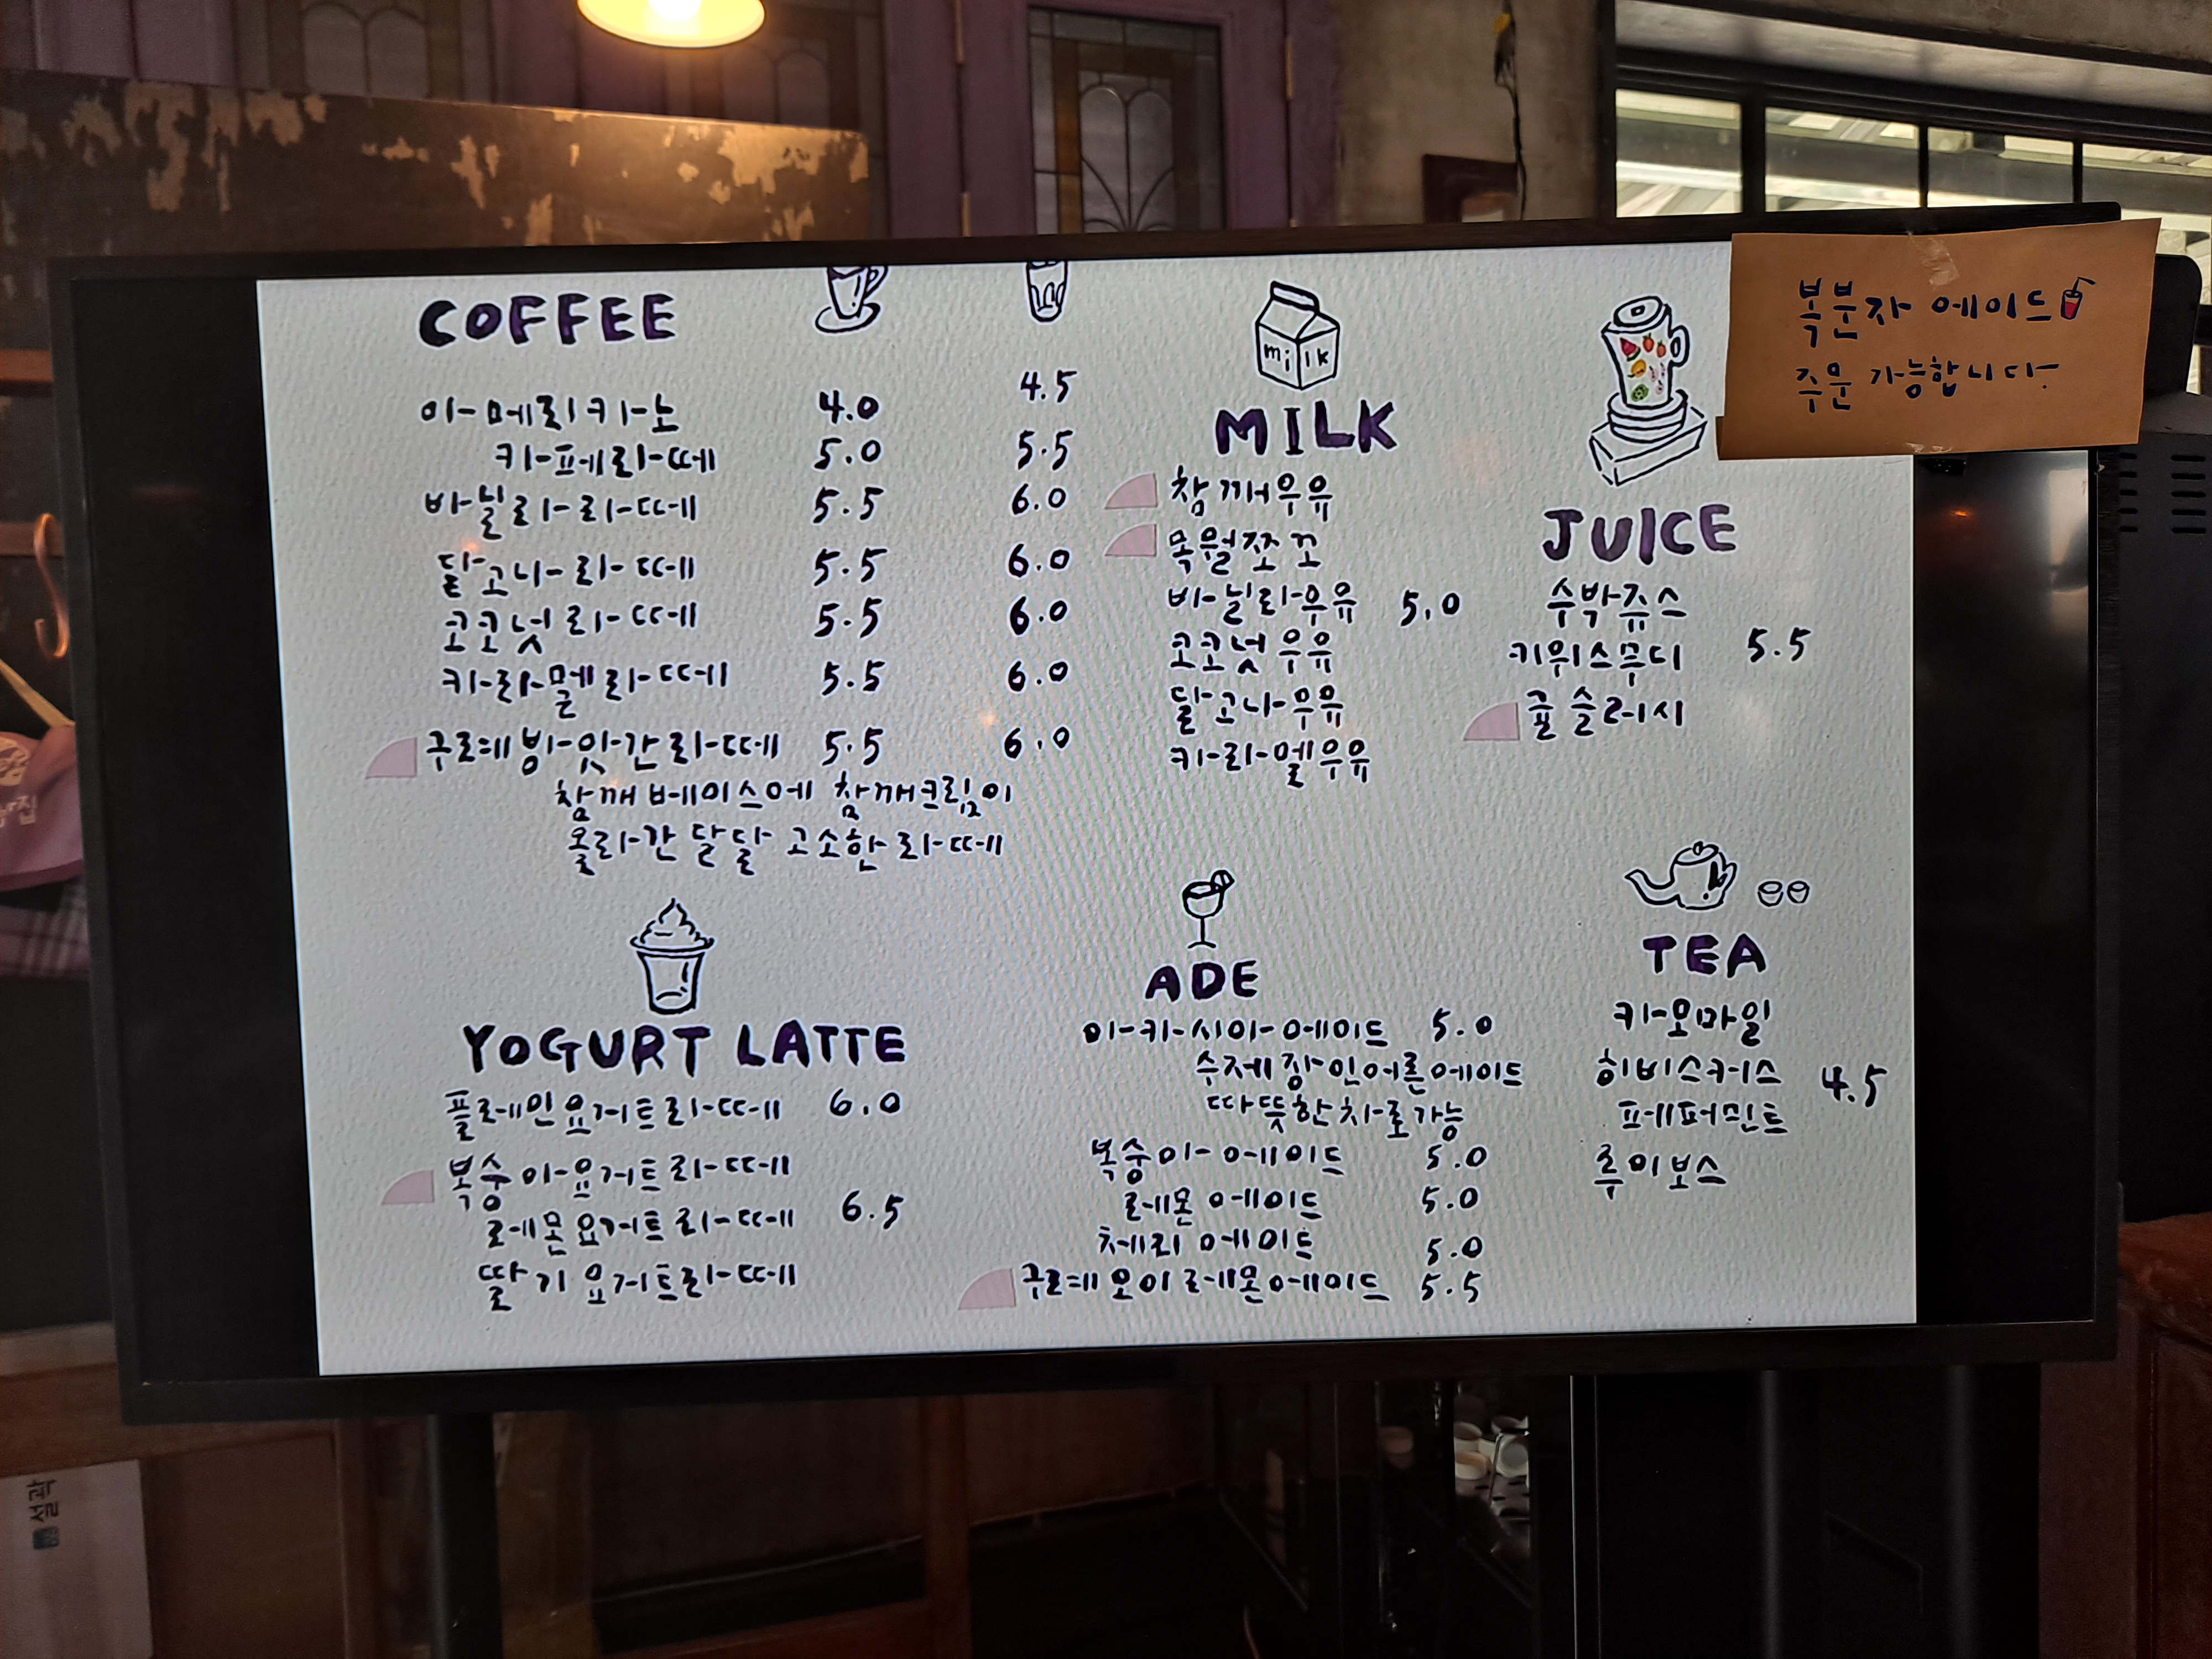 COFFEE
아메리카노 4.0 4.5
카페라떼 5.0 5.5
바닐라라떼 5.5 6.0
달고나라떼 5.5 6.0
코코넛라떼 5.5 6.0
카라멜라떼 5.5 6.0
구르네방앗간라떼 5.5 6.0
참깨베이스에 참깨크림이
올라간 달달 고소한라떼
milk
MILK
참깨우유
목월쪼꼬
바닐라우유 5.0
코코넛우유
달고나우유
카라멜우유
JUICE
수박쥬스
키위스무디 5.5
귤슬러시
복분자 에이드
주문 가능합니다.
YOGURT LATTE
플레인요거트라떼 6.0
복숭아요거트라떼
레몬요거트라떼 6.5
딸기요거트라떼
ADE
아카시아에이드 5.0
수제장인어른에이드
따뜻한차로가능
복숭아에이드 5.0
레몬에이드 5.0
체리에이드 5.0
구르네오이레몬에이드 5.5
TEA
카모마일
히비스커스 4.5
페퍼민트
루이보스